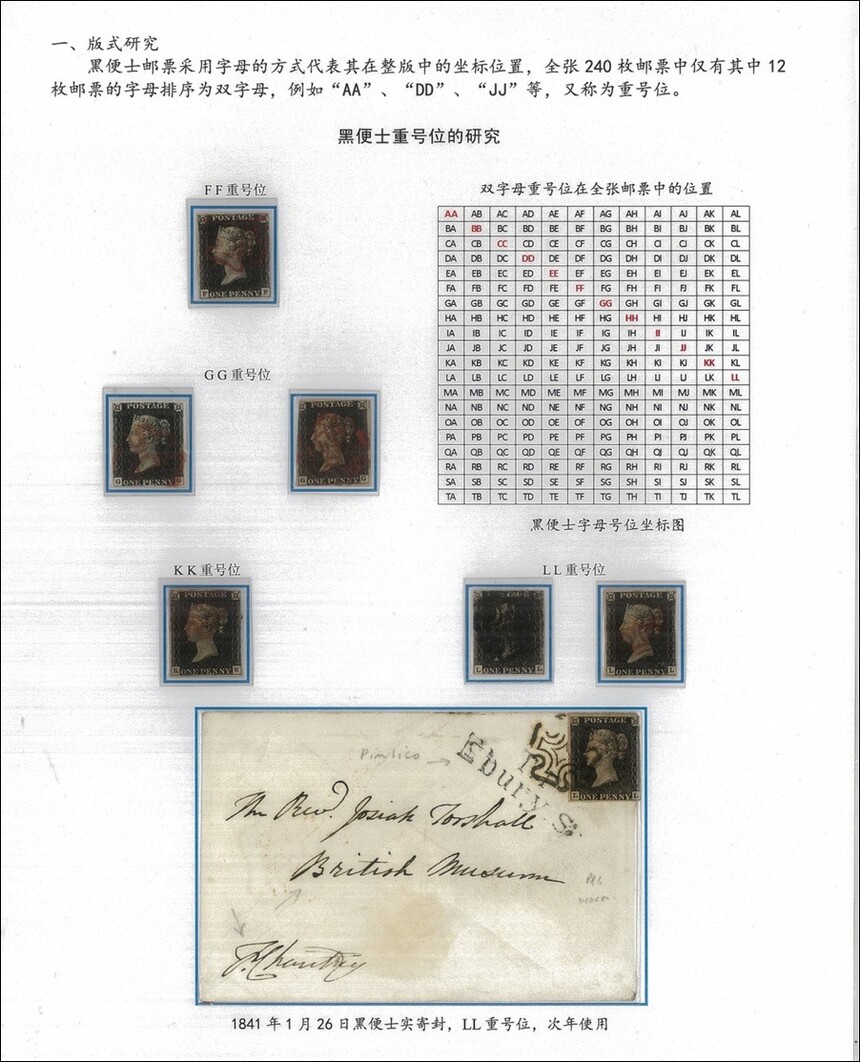 一、版式研究
黑便士邮票采用字母的方式代表其在整版中的坐标位置，全张 240 枚邮票中仅有其中 12
枚邮票的字母排序为双字母，例如“AA”、“DD”、“JJ”等，又称为重号位。
黑便士重号位的研究
FF重号位
POSTAGE
F ONE PENNY F
双字母重号位在全张邮票中的位置
AA AB AC AD AE AF AG AH AI AJ AK AL
BA BB BC BD BE BF BG BH BI BJ BK BL
CA CB CC CD CE CF CG CH CI CJ CK CL
DA DB DC DD DE DF DG DH DI DJ DK DL
EA EB EC ED EE EF EG EH EI EJ EK EL
FA FB FC FD FE FF FG FH FI FJ FK FL
GA GB GC GD GE GF GG GH GI GJ GK GL
HA HB HC HD HE HF HG HH HI HJ HK HL
IA IB IC ID IE IF IG IH II IJ IK IL
JA JB JC JD JE JF JG JH JI JJ JK JL
KA KB KC KD KE KF KG KH KI KJ KK KL
LA LB LC LD LE LF LG LH LI LJ LK LL
MA MB MC MD ME MF MG MH MI MJ MK ML
NA NB NC ND NE NF NG NH NI NJ NK NL
OA OB OC OD OE OF OG OH OI OJ OK OL
PA PB PC PD PE PF PG PH PI PJ PK PL
QA QB QC QD QE QF QG QH QI QJ QK QL
RA RB RC RD RE RF RG RH RI RJ RK RL
SA SB SC SD SE SF SG SH SI SJ SK SL
TA TB TC TD TE TF TG TH TI TJ TK TL
黑便士字母号位坐标图
GG重号位
POSTAGE
G ONE PENNY G
POSTAGE
G ONE PENNY G
KK重号位
POSTAGE
K ONE PENNY K
LL重号位
L ONE PENNY L
POSTAGE
L ONE PENNY L
POSTAGE
L ONE PENNY L
Pimlico
Ebury St
The Revd. Josiah Forshall
British Museum
1841 年 1 月 26 日黑便士实寄封，LL 重号位，次年使用